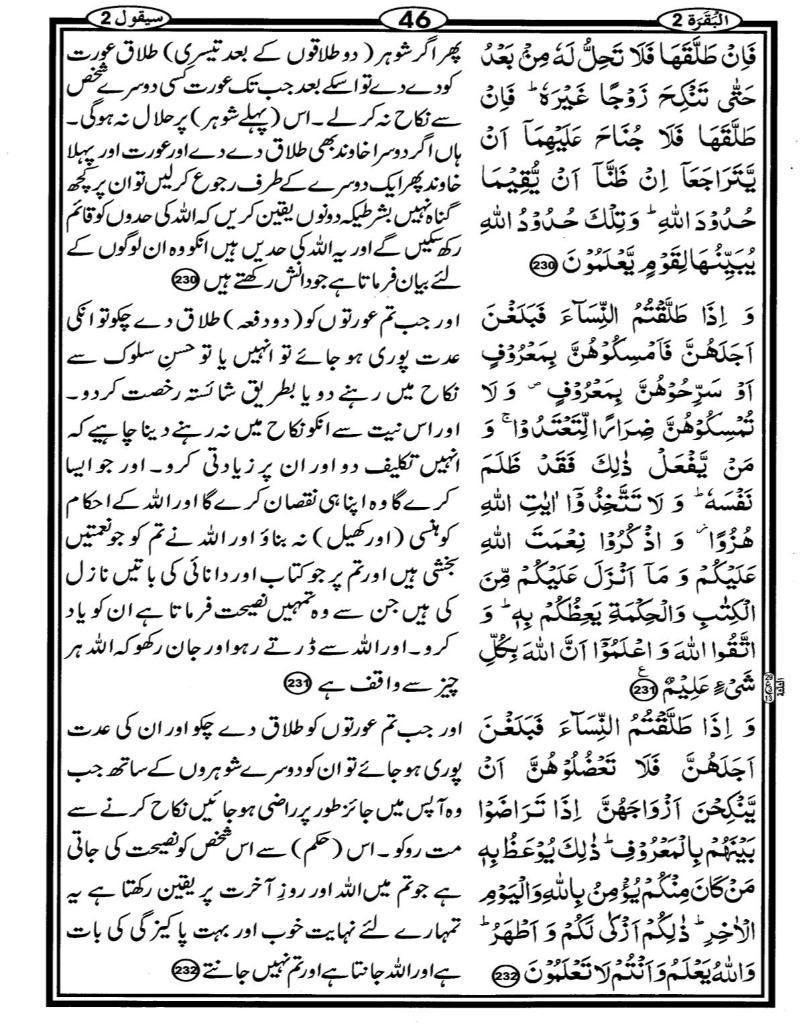 البقرة 2
46
سيقول 2
فَاِنْ طَلَّقَهَا فَلَا تَحِلُّ لَهٗ مِنْۢ بَعْدُ
حَتّٰى تَنْكِحَ زَوْجًا غَيْرَهٗ ؕ فَاِنْ
طَلَّقَهَا فَلَا جُنَاحَ عَلَيْهِمَاۤ اَنْ
يَّتَرَاجَعَاۤ اِنْ ظَنَّاۤ اَنْ يُّقِيْمَا
حُدُوْدَ اللّٰهِ ؕ وَتِلْكَ حُدُوْدُ اللّٰهِ
يُبَيِّنُهَا لِقَوْمٍ يَّعْلَمُوْنَ 230
پھر اگر شوہر (دو طلاقوں کے بعد تیسری) طلاق عورت
کو دے دے تو اسکے بعد جب تک عورت کسی دوسرے شخص
سے نکاح نہ کر لے۔ اس (پہلے شوہر) پر حلال نہ ہوگی۔
ہاں اگر دوسرا خاوند بھی طلاق دے دے اور عورت اور پہلا
خاوند پھر ایک دوسرے کے طرف رجوع کر لیں تو ان پر کچھ
گناہ نہیں بشرطیکہ دونوں یقین کریں کہ اللہ کی حدوں کو قائم
رکھ سکیں گے اور یہ اللہ کی حدیں ہیں انکو وہ ان لوگوں کے
لئے بیان فرماتا ہے جو دانش رکھتے ہیں 230
وَ اِذَا طَلَّقْتُمُ النِّسَآءَ فَبَلَغْنَ
اَجَلَهُنَّ فَاَمْسِكُوْهُنَّ بِمَعْرُوْفٍ
اَوْ سَرِّحُوْهُنَّ بِمَعْرُوْفٍ ۪ وَ لَا
تُمْسِكُوْهُنَّ ضِرَارًا لِّتَعْتَدُوْا ۚ وَ
مَنْ يَّفْعَلْ ذٰلِكَ فَقَدْ ظَلَمَ
نَفْسَهٗ ؕ وَ لَا تَتَّخِذُوْۤا اٰيٰتِ اللّٰهِ
هُزُوًا ؗ وَ اذْكُرُوْا نِعْمَتَ اللّٰهِ
عَلَيْكُمْ وَ مَاۤ اَنْزَلَ عَلَيْكُمْ مِّنَ
الْكِتٰبِ وَالْحِكْمَةِ يَعِظُكُمْ بِهٖ ؕ وَ
اتَّقُوا اللّٰهَ وَ اعْلَمُوْۤا اَنَّ اللّٰهَ بِكُلِّ
شَىْءٍ عَلِيْمٌ ع 231
اور جب تم عورتوں کو (دو دفعہ) طلاق دے چکو تو انکی
عدت پوری ہو جائے تو انہیں یا تو حسنِ سلوک سے
نکاح میں رہنے دو یا بطریق شائستہ رخصت کردو۔
اور اس نیت سے انکو نکاح میں نہ رہنے دینا چاہیے کہ
انہیں تکلیف دو اور ان پر زیادتی کرو۔ اور جو ایسا
کرے گا وہ اپنا ہی نقصان کرے گا اور اللہ کے احکام
کو ہنسی (اور کھیل) نہ بناؤ اور اللہ نے تم کو جو نعمتیں
بخشی ہیں اور تم پر جو کتاب اور دانائی کی باتیں نازل
کی ہیں جن سے وہ تمہیں نصیحت فرماتا ہے ان کو یاد
کرو۔ اور اللہ سے ڈرتے رہو اور جان رکھو کہ اللہ ہر
چیز سے واقف ہے 231
وَ اِذَا طَلَّقْتُمُ النِّسَآءَ فَبَلَغْنَ
اَجَلَهُنَّ فَلَا تَعْضُلُوْهُنَّ اَنْ
يَّنْكِحْنَ اَزْوَاجَهُنَّ اِذَا تَرَاضَوْا
بَيْنَهُمْ بِالْمَعْرُوْفِ ؕ ذٰلِكَ يُوْعَظُ بِهٖ
مَنْ كَانَ مِنْكُمْ يُؤْمِنُ بِاللّٰهِ وَالْيَوْمِ
الْاٰخِرِ ؕ ذٰلِكُمْ اَزْكٰى لَكُمْ وَ اَطْهَرُ ؕ
وَاللّٰهُ يَعْلَمُ وَاَنْتُمْ لَا تَعْلَمُوْنَ 232
اور جب تم عورتوں کو طلاق دے چکو اور ان کی عدت
پوری ہو جائے تو ان کو دوسرے شوہروں کے ساتھ جب
وہ آپس میں جائز طور پر راضی ہو جائیں نکاح کرنے سے
مت روکو۔ اس (حکم) سے اس شخص کو نصیحت کی جاتی
ہے جو تم میں اللہ اور روزِ آخرت پر یقین رکھتا ہے یہ
تمہارے لئے نہایت خوب اور بہت پاکیزگی کی بات
ہے اور اللہ جانتا ہے اور تم نہیں جانتے 232